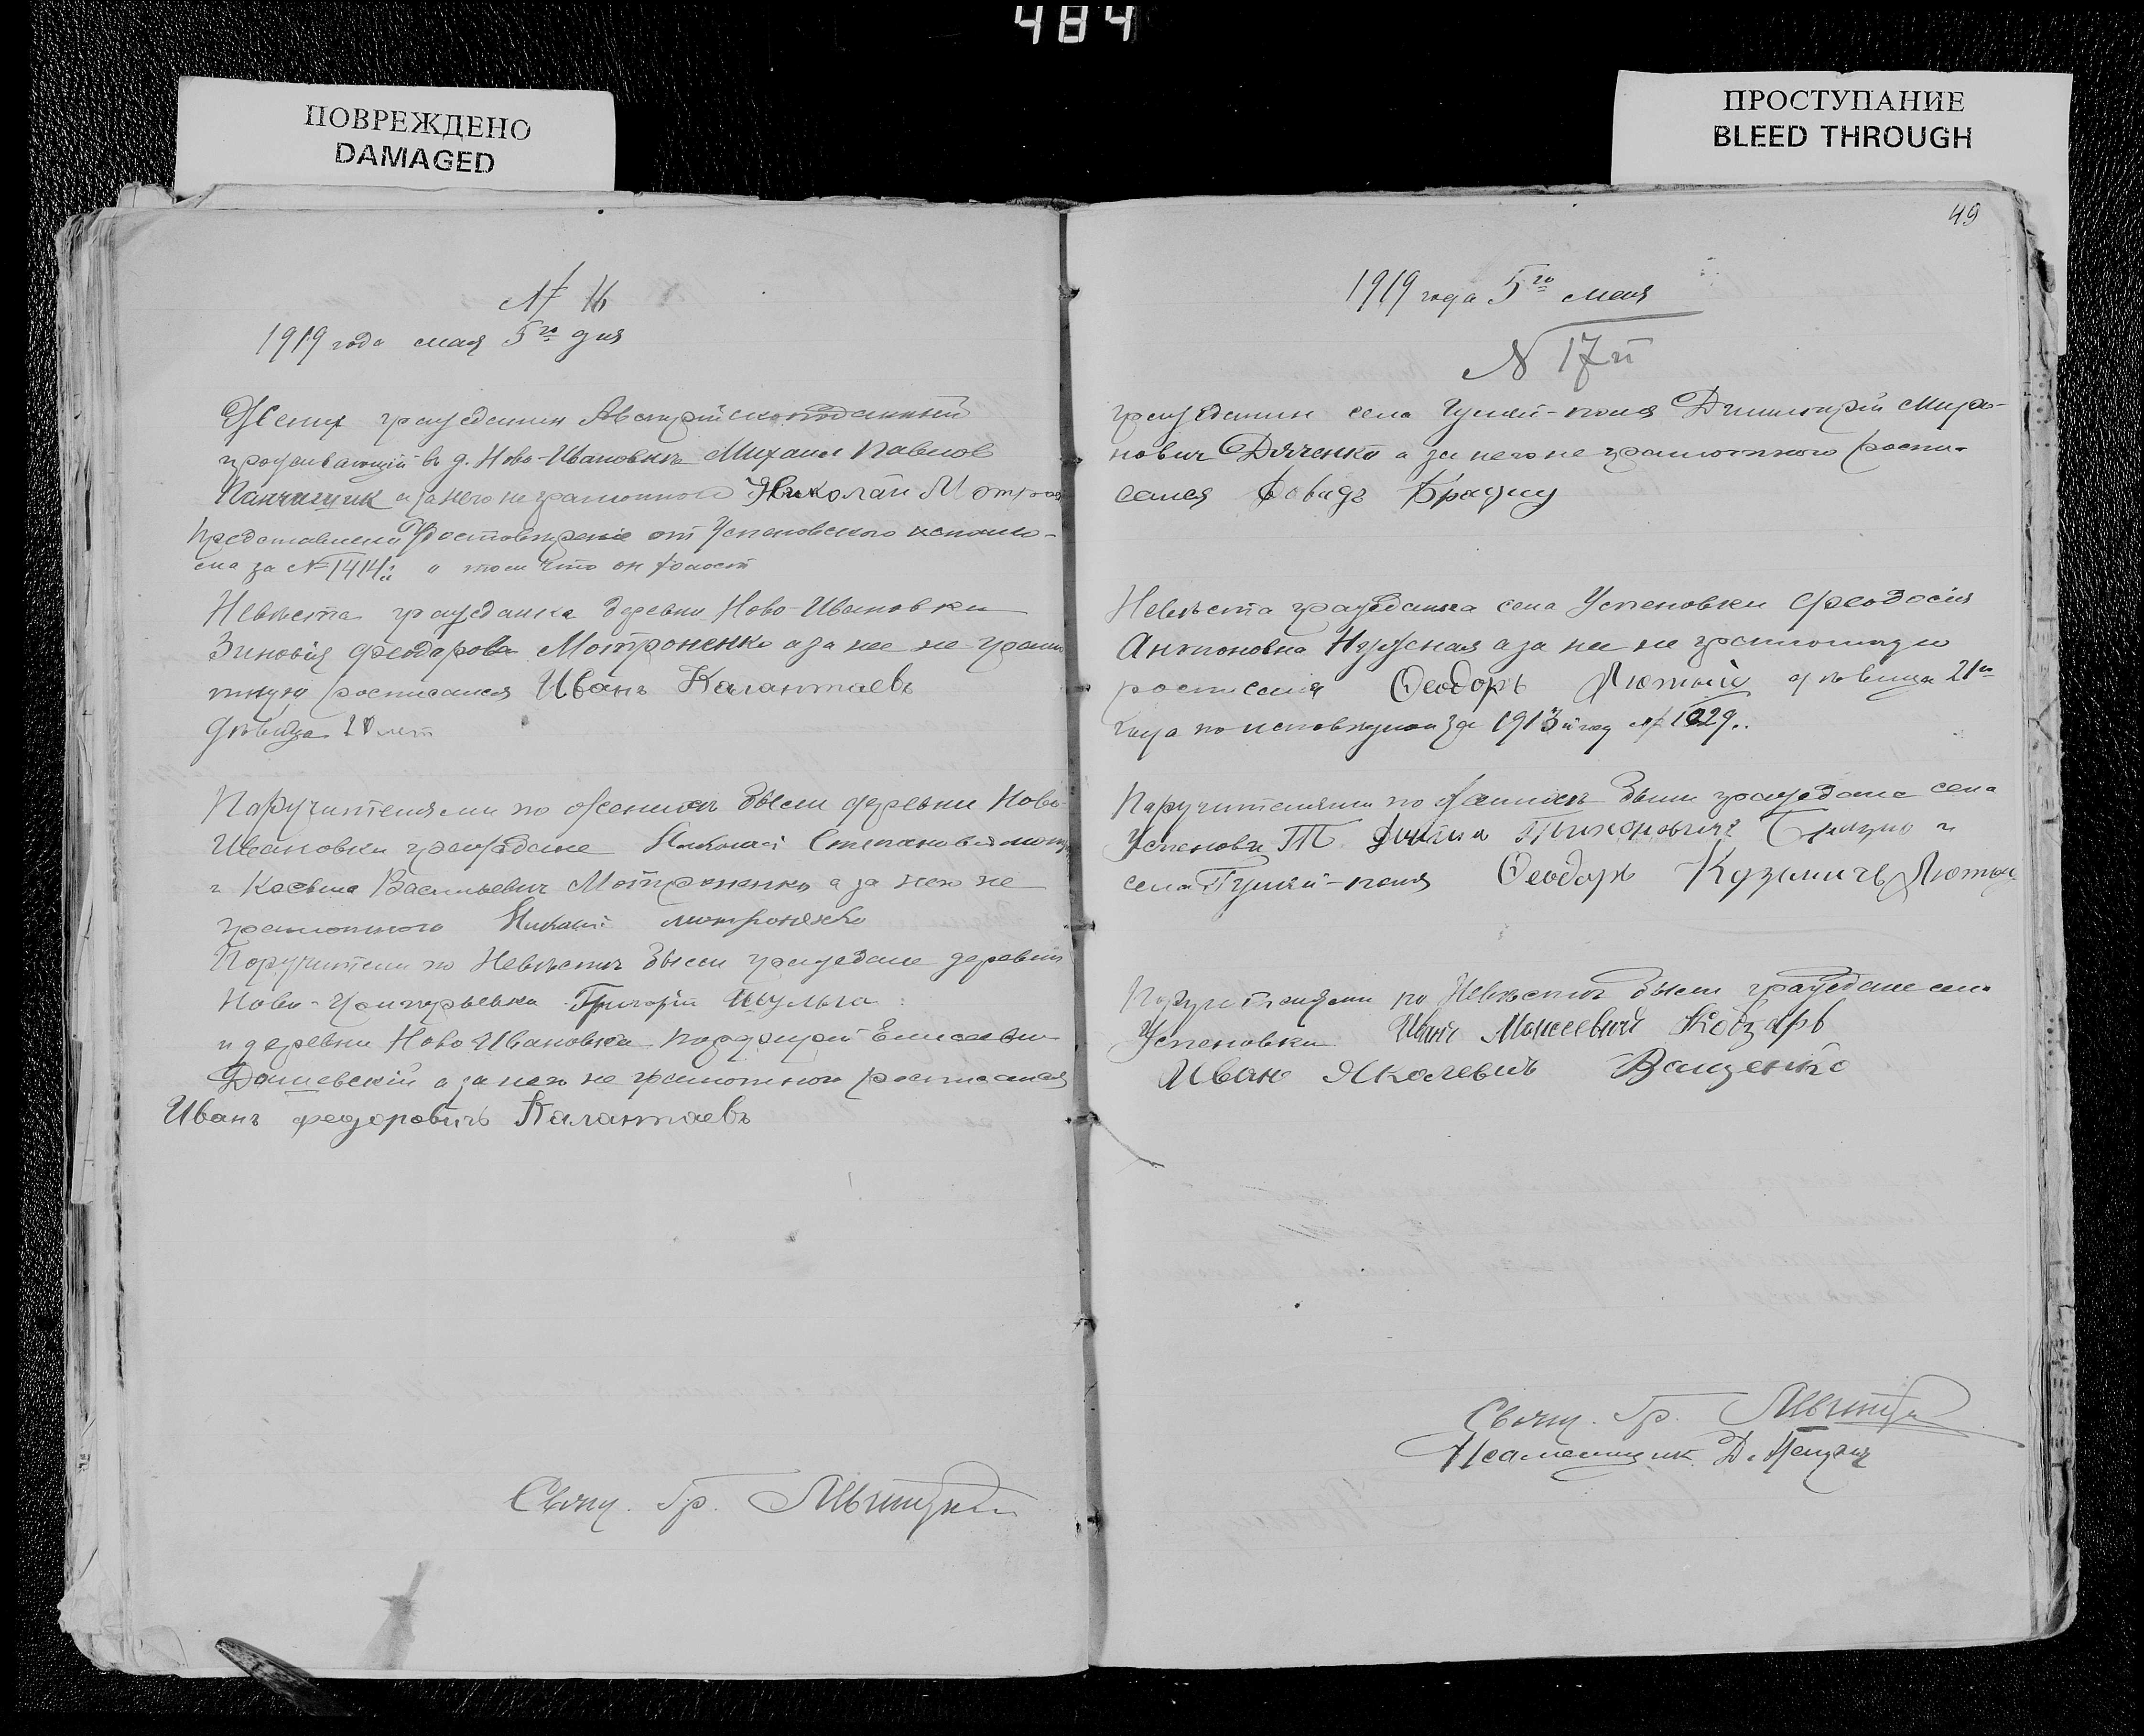 484
ПОВРЕЖДЕНО
DAMAGED
ПРОСТУПАНИЕ
BLEED THROUGH
№ 16
1919 года мая 5го дня
Жених гражданин Австрийскоподанный
проживающий въ д. Ново-Ивановкъ Михаил Павлов
а за него не грамотного Николай
от Успеновского
за № 1414й о том что он холост
Невѣста гражданка деревни Ново-Ивановки
Зиновія Феодорова Мотроненко а за нее не грам
тную росписался Иванъ Калантаевъ
дѣвица лет
Паручителями по жениху были деревни Ново-
Ивановки граждане Николай Степанович
и Косьма Васильевич Мотроненко а за него не
грамотного Николай мотроненко
Поручители по Невѣсте были граждане деревни
Ново- Григорій Шульга
и деревни Ново Ивановки Порфирій Елисеевич
Дашевскій а за него не грамотного росписался
Иванъ федоровичъ Калантаевъ
Свящ. Гр.
49
1919 года 5го мая
N 17й
гражданин села Гуляй-поля Димитрій Миро-
нович Дяченко а за него не грамотного роспи-
сался Довидъ
Невѣста гражданка села Успеновки Феодосия
Антоновна Нужная а за нее не грамотную
росписался Феодоръ Лютый дѣвица 21го
года по исповедной за 1913й год № 1029.
Паручителями по жениху были граждане села
Тихоновичъ и
села Гуляй-поля Феодоръ Козьмичъ Лютый
Поручителями по Невѣсте были граждане села
Успеновки Иван Моисеевич Кобзарь
Иван Яковлевичъ Ващенко
Свящ. Гр.
Псаломщик Д.